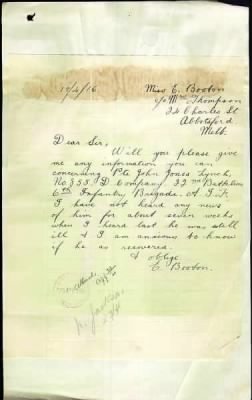 19/4/16
Miss E. Booton
c/o Mrs Thompson
24 Charles St
Abbotsford
Melb.
Dear Sir,
Will you please give
me any information you can
concerning Pte John Jones Lynch,
No 355 D Company, 22nd Battalion
6th Infantry Brigade. A. I. F.
I have not heard any news
of him for about seven weeks
when I heard last he was still
ill & I am anxious to know
if he as recovered.
I oblige
E Booton.